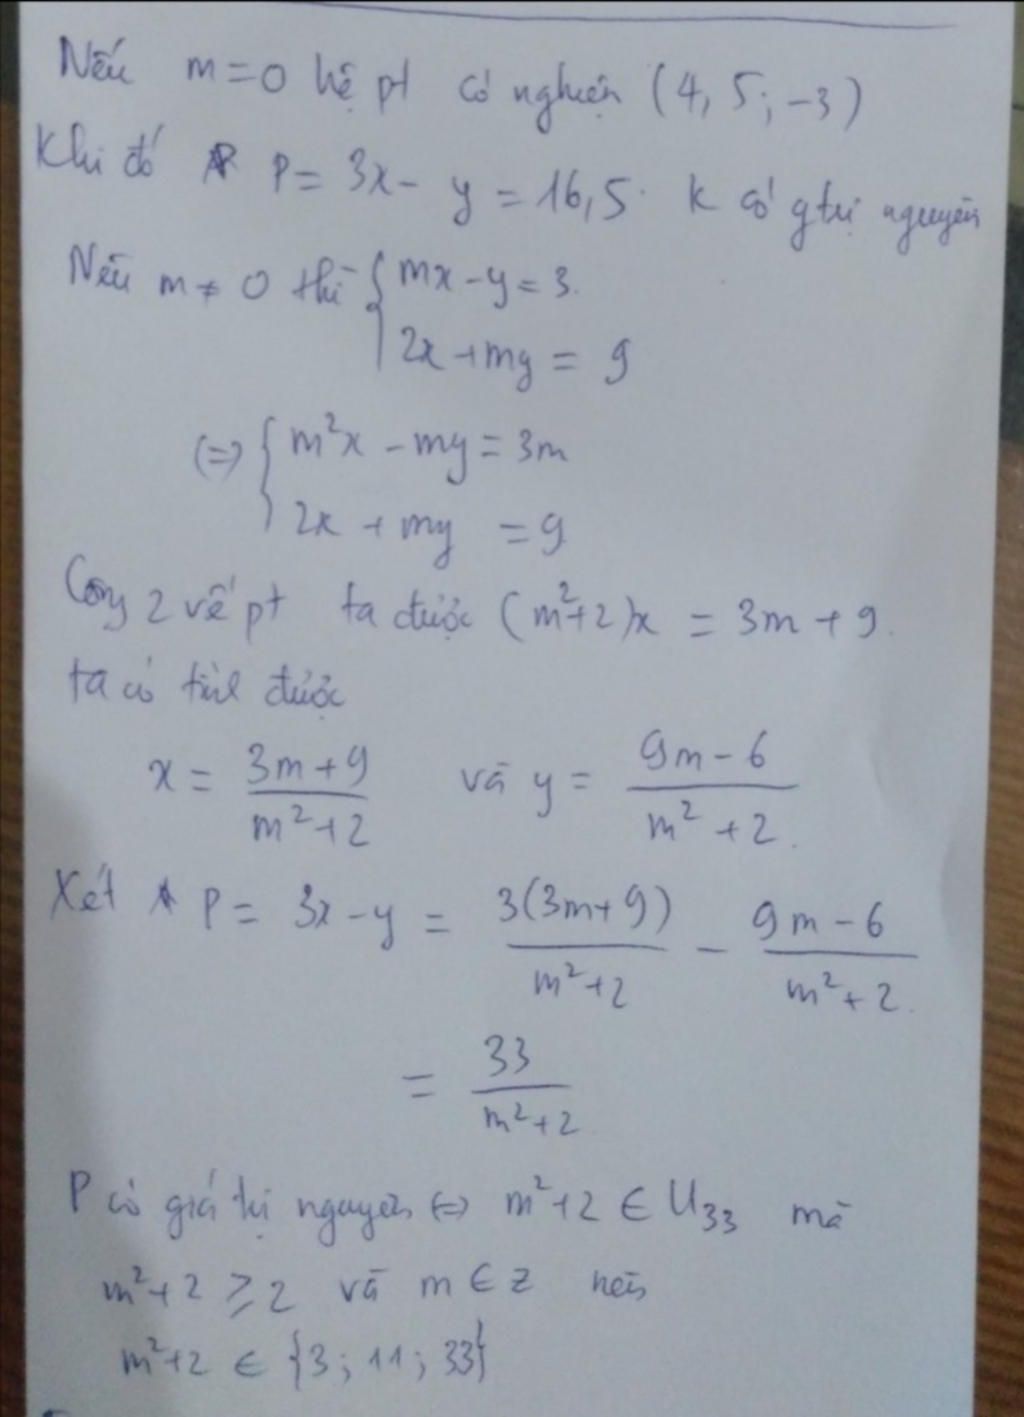 Nếu m=0 hệ pt có nghiệm (4,5;-3)
Khi đó P = 3x - y = 16,5. K có gtrị nguyên
Nếu m ≠ 0 thì { mx - y = 3.
2x + my = 9
(=) { m²x - my = 3m
2x + my = 9
Cộng 2 vế pt ta được (m²+2)x = 3m + 9.
ta có tìm được
x = (3m+9)/(m²+2) và y = (9m-6)/(m²+2).
Xét P = 3x - y = 3(3m+9)/(m²+2) - (9m-6)/(m²+2).
= 33/(m²+2)
P có giá trị nguyên (=) m²+2 ∈ U33 mà
m²+2 ≥ 2 và m ∈ Z nên
m²+2 ∈ {3; 11; 33}